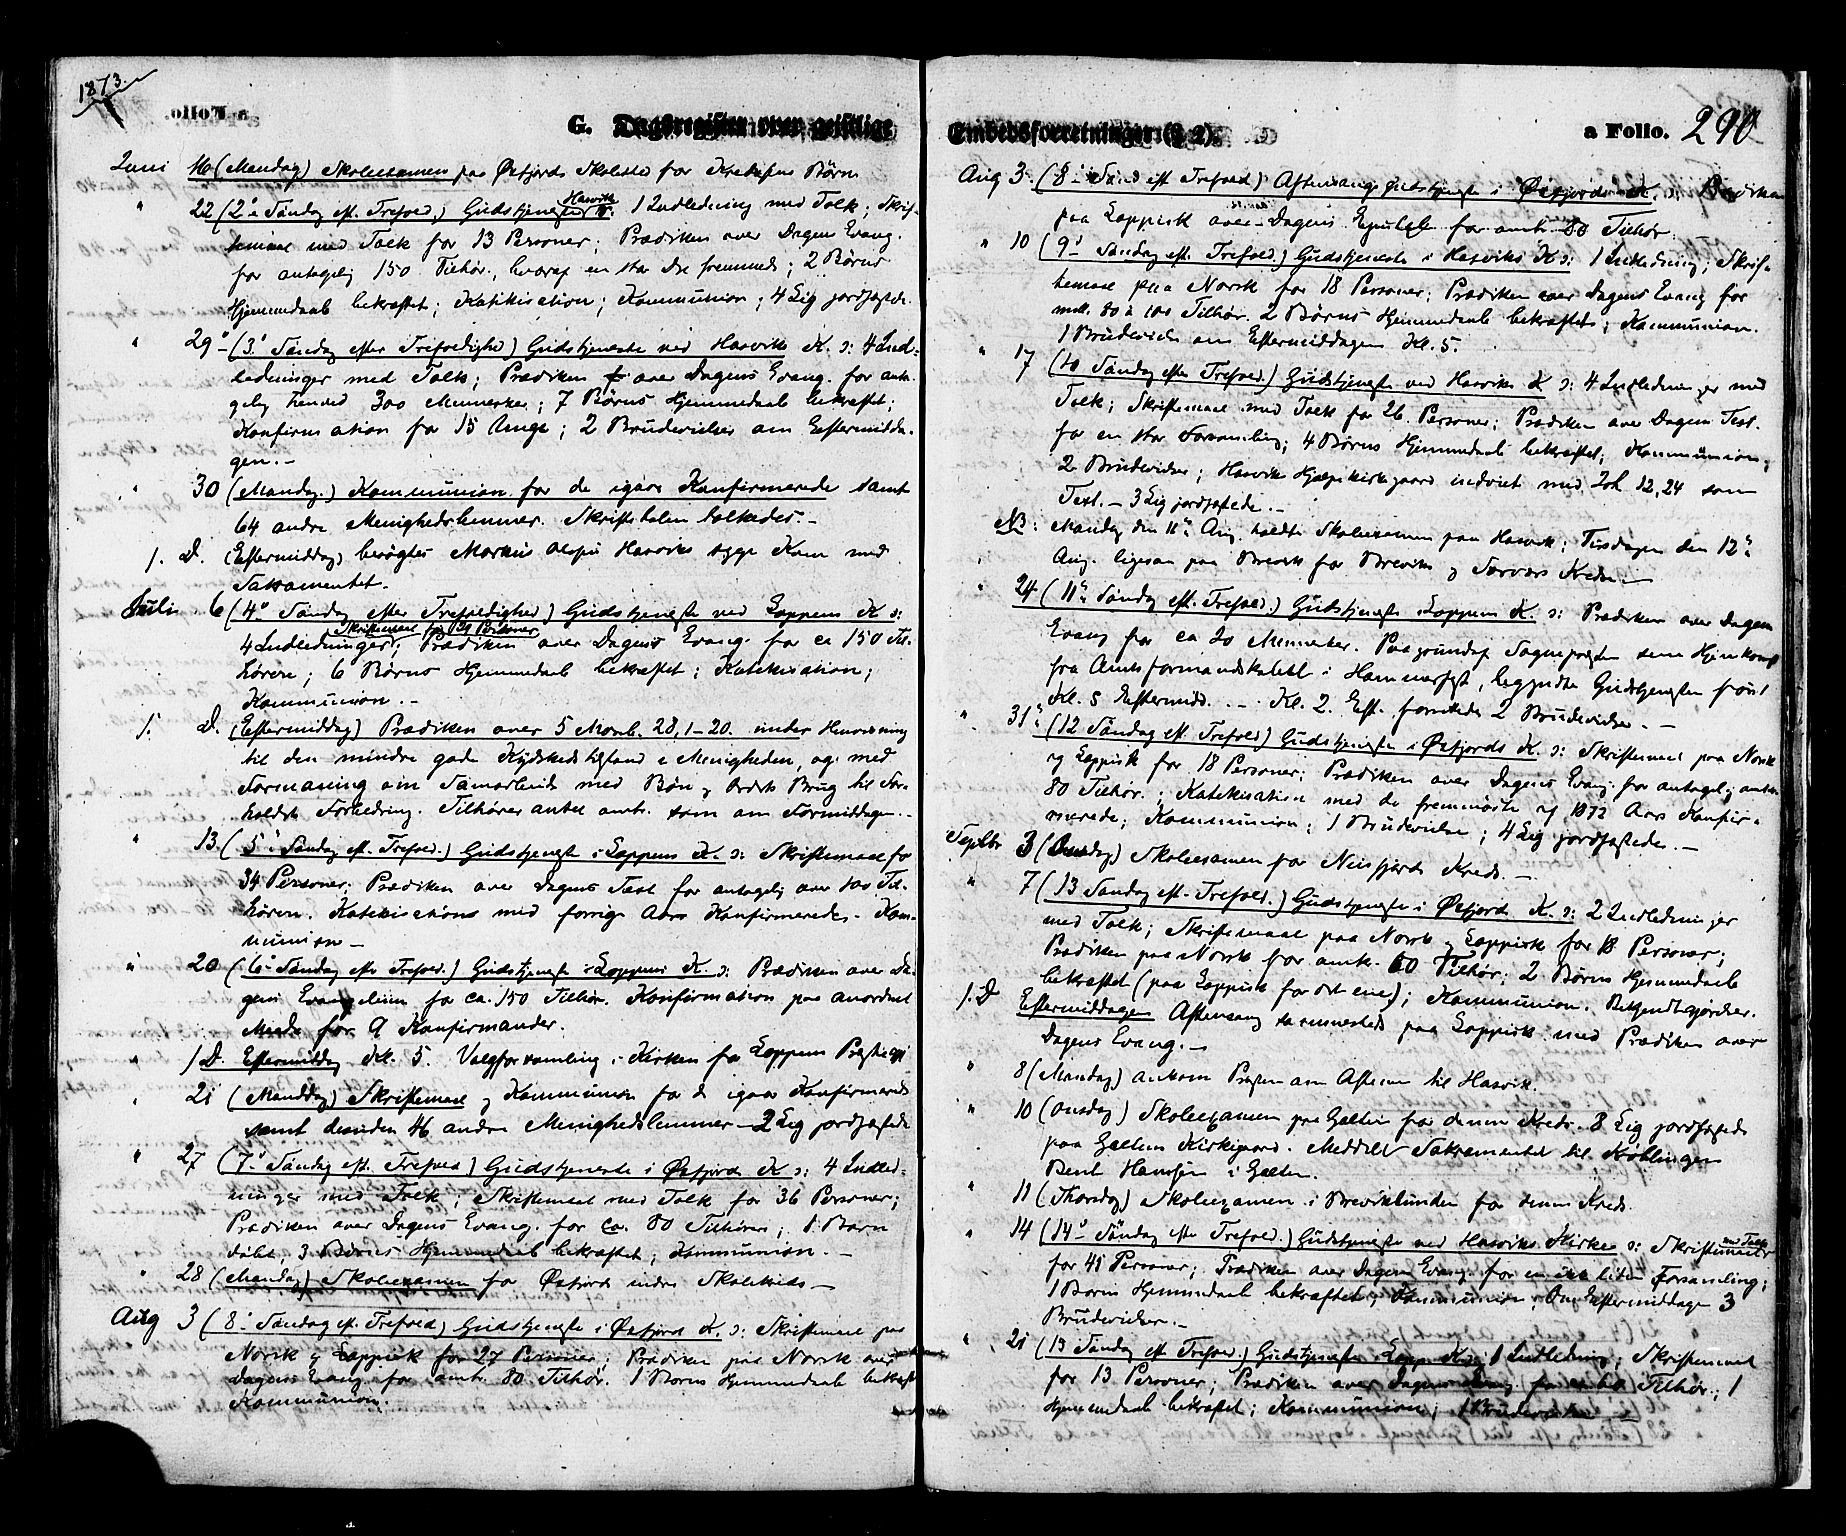 1873.
a Folio.
G. Dagsregister over geistlige
Juni 16 (Mandag) Skoleexamen paa Øxfjords Skolested for Kredsens Børn
" 22 (2de Søndag eft. Trefold.) Gudstjeneste Hasvik K: 1 Indledning med Tolk; Skrif-
temaal med Tolk for 13 Personer; Prædiken over Dagens Evang.
for antagelig 150 Tilhør., hvoraf en stor Del fremmede; 2 Børns
Hjemmedaab bekræftet; Katekisation; Kommunion; 4 Lig jordfæstede.
" 29 (3. Søndag efter Trefoldighed) Gudstjeneste ved Hasviks K. s: 4 Ind-
ledninger med Tolk; Prædiken over Dagens Evang. for anta-
gelig henved 300 Mennesker; 7 Børns Hjemmedaab bekræftet;
Konfirmation for 15 Unge; 2 Brudevielser om Eftermidda-
gen.-
" 30 (Mandag.) Kommunion for de igaar Konfirmerede samt
64 andre Menighedslemmer. Skriftetalen tolkedes.-
s. D. (Eftermiddag) besøgtes Markus Olsens Hasviks syge Kone med
Sakramentet.
Juli 6 (4de Søndag efter Trefoldighed) Gudstjeneste ved Loppens K s:
4 Indledninger; Skriftemaal for 21 Personer Prædiken over Dagens Evang. for ca 150 Til-
hørere; 6 Børns Hjemmedaab bekræftet; Katekisation;
Kommunion.-
s. D. (Eftermiddag) Prædiken over 5 Moseb. 28, 1-20. under Henvisning
til den mindre gode Kydskedstilstand i Menigheden, og med
Formaning om Samarbeide med Bøn og Ordets Brug til For-
holdets Forbedring. Tilhørerantal omtr. som om Formiddagen.-
" 13 (5te Søndag eft. Trefold.) Gudstjeneste i Loppens K. s: Skriftemaal for
34 Personer; Prædiken over Dagens Text for antagelig over 100 Til-
hørere. Katekisation med forrige Aars Konfirmerede. Kom-
munion -
" 20 (6te Søndag efter Trefold.) Gudstjeneste i Loppens K. s: Prædiken over Da-
gens Evangelium for ca. 150 Tilhør. Konfirmation paa anordnet
Maade for 9 Konfirmander.
" s D. Eftermiddag Kl. 5. Valgforsamling i Kirken for Loppens Præstegj.
" 21 (Manddag) Skriftemaal og Kommunion for de igaar Konfirmerede
samt desuden 46 andre Menighedslemmer - 2 Lig jordfæstede
" 27 (7de Søndag eft. Trefold) Gudstjeneste i Øxfjord K s: 4 Indled-
ninger med Tolk; Skriftemaal med Tolk for 36 Personer;
Prædiken over Dagens Evang. for ca. 80 Tilhører; 1 Barn
døbt, 3 Børns Hjemmedaab bekræftet; Kommunion.-
" 28 (Mandag) Skoleexamen for Øxfjord indre Skolekreds -
Aug 3 (8de Søndag ef. Trefold) Gudstjeneste i Øxfjord K. s: Skriftemaal paa
Norsk og Lappisk for 27 Personer; Prædiken paa Norsk over
Dagens Evang. for omtr. 80 Tilhør. 1 Barns Hjemmedaab bekræft
Kommunion.
Embedsforretninger (§ 2).
a Folio. 290
Aug 3. (8de Sønd eft Trefold) Aftensangsgudstjeneste i Øxfjords K. s: Prædiken
paa Lappisk over Dagens Epistel for omtr. 80 Tilhør.
" 10 (9de Søndag eft. Trefold.) Gudstjeneste i Hasviks K s: 1 Indledning; Skrif-
temaal paa Norsk for 18 Personer; Prædiken over Dagens Evang for
mell. 80 à 100 Tilhør. 2 Børns Hjemmedaab bekræftet; Kommunion.
1 Brudevielse om Eftermiddagen Kl. 5.
" 17 (10 Søndag efter Trefold.) Gudstjeneste ved Hasviks K s: 4 Indledninger med
Tolk; Skriftemaal med Tolk for 26 Personer; Prædiken over Dagens Text.
for en stor Forsamling; 4 Børns Hjemmedaab bekræftet; Kommunion;
2 Brudevielser; Hasviks Hjælpekirkegaard indviet med Joh 12, 24 som
Text. - 3 Lig jordfæstede.-
NB: Mandag den 11te Aug. holdtes Skoleexamen paa Hasvik; Tirsdagen den 12te
Aug. ligesaa paa Brevik for Breviks og Sørværs Kredse -
" 24 (11te Søndag eft. Trefold.) Gudstjeneste i Loppens K. s: Prædiken over Dagens
Evang for ca 20 Mennesker. Paagrundaf Sognepræstens sene Hjemkomst
fra Amtsformandskabet i Hammerfest, begyndte Gudstjenesten først
Kl. 5 Eftermidd. - . Kl. 2. Eft. forrettedes 2 Brudevielser.-
" 31te (12 Søndag eft. Trefold) Gudstjeneste i Øxfjords K. s: Skriftemaal paa Norsk
og Lappisk for 18 Personer; Prædiken over Dagens Evang. for antagelig omtr.
80 Tilhør.; Katekisation med de fremmødte af 1872 Aars Konfir-
merede; Kommunion; 1 Brudevielse; 4 Lig jordfæstede.-
Septbr 3 (Onsdag) Skoleexamen for Nusfjords Kreds.-
" 7 (13 Søndag eft. Trefold.) Gudstjeneste i Øxfjord K. s: 2 Indledninger
med Tolk; Skriftemaal paa Norsk og Lappisk for 18 Personer;
Prædiken paa Norsk for omtr. 60 Tilhør; 2 Børns Hjemmedaab
bekræftet (paa Lappisk for det ene); Kommunion. Bekjendtgjørelser.
s. D Eftermiddagen Aftensang paa Lappisk med Prædiken over
Dagens Evang.-
" 8 (Mandag) ankom Præsten om Aftenen til Hasvik.
" 10 (Onsdag) Skoleexamen paa Galten for denne Kreds. 8 Lig jordfæstede
paa Galtens Kirkegaard. Meddelt Sakramentet til
Bent Hansen i Galten.
" 11 (Thorsdag) Skoleexamen i Breviklunden for denne Kreds.
" 14 (14de Søndag efter Trefold.) Gudstjeneste ved Hasviks Kirke s: Skriftemaal med Tolk
for 41 Personer; Prædiken over Dagens Evang for en ikke liden Forsamling;
1 Barns Hjemmedaab bekræftet; Kommunion; Om Eftermiddagen 3
Brudevielser.-
" 21 (15 Søndag eft Trefold.) Gudstjeneste Lopp. K. s: 1 Indledning; Skriftemaal
for 13 Personer; Prædiken over Dagens Evang for ca 60 Tilhør.; 1
Hjemmedaab bekræftet; Kommunion; 1 Brudevielse -